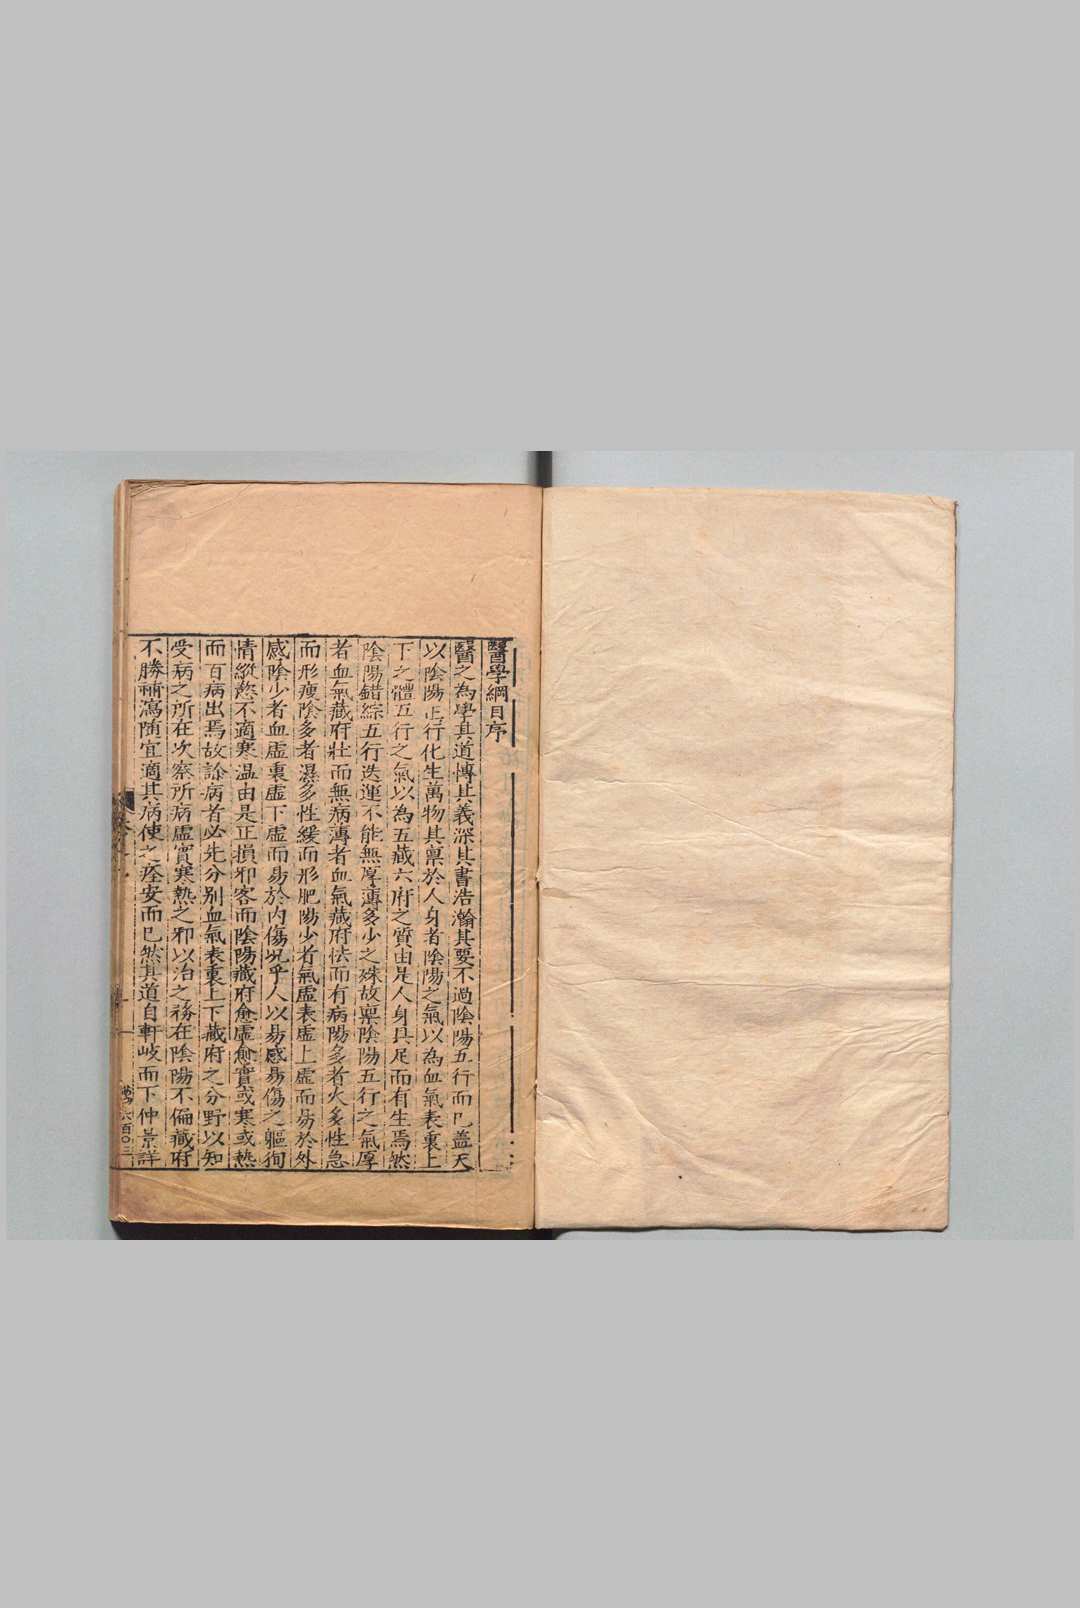 醫學綱目序
醫之為學其道博其義深其書浩瀚其要不過陰陽五行而已蓋天
以陰陽五行化生萬物其稟於人身者陰陽之氣以為血氣表裏上
下之體五行之氣以為五藏六府之質由是人身具足而有生焉然
陰陽錯綜五行迭運不能無厚薄多少之殊故稟陰陽五行之氣厚
者血氣藏府壯而無病薄者血氣藏府怯而有病陽多者火多性急
而形瘦陰多者濕多性緩而形肥陽少者氣虛表虛上虛而易於外
感陰少者血虛裏虛下虛而易於內傷况乎人以易感易傷之軀徇
情縱慾不適寒温由是正損邪客而陰陽藏府愈虛愈實或寒或熱
而百病出焉故診病者必先分别血氣表裏上下藏府之分野以知
受病之所在次察所病虛實寒熱之邪以治之務在陰陽不偏藏府
不勝補瀉随宜適其病使之痊安而已然其道自軒岐而下仲景詳